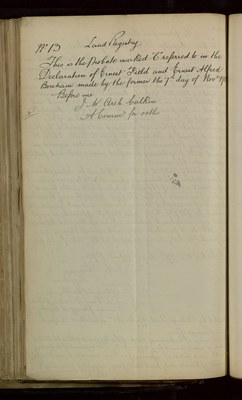 No 13 Land Registry
This is the Probate marked C referred to in the
Declaration of Ernest Field and Ernest Alfred
Bonham made by the former this 7th day of Novr
Before me
J. W. Arch Calkin
A Commr for oaths